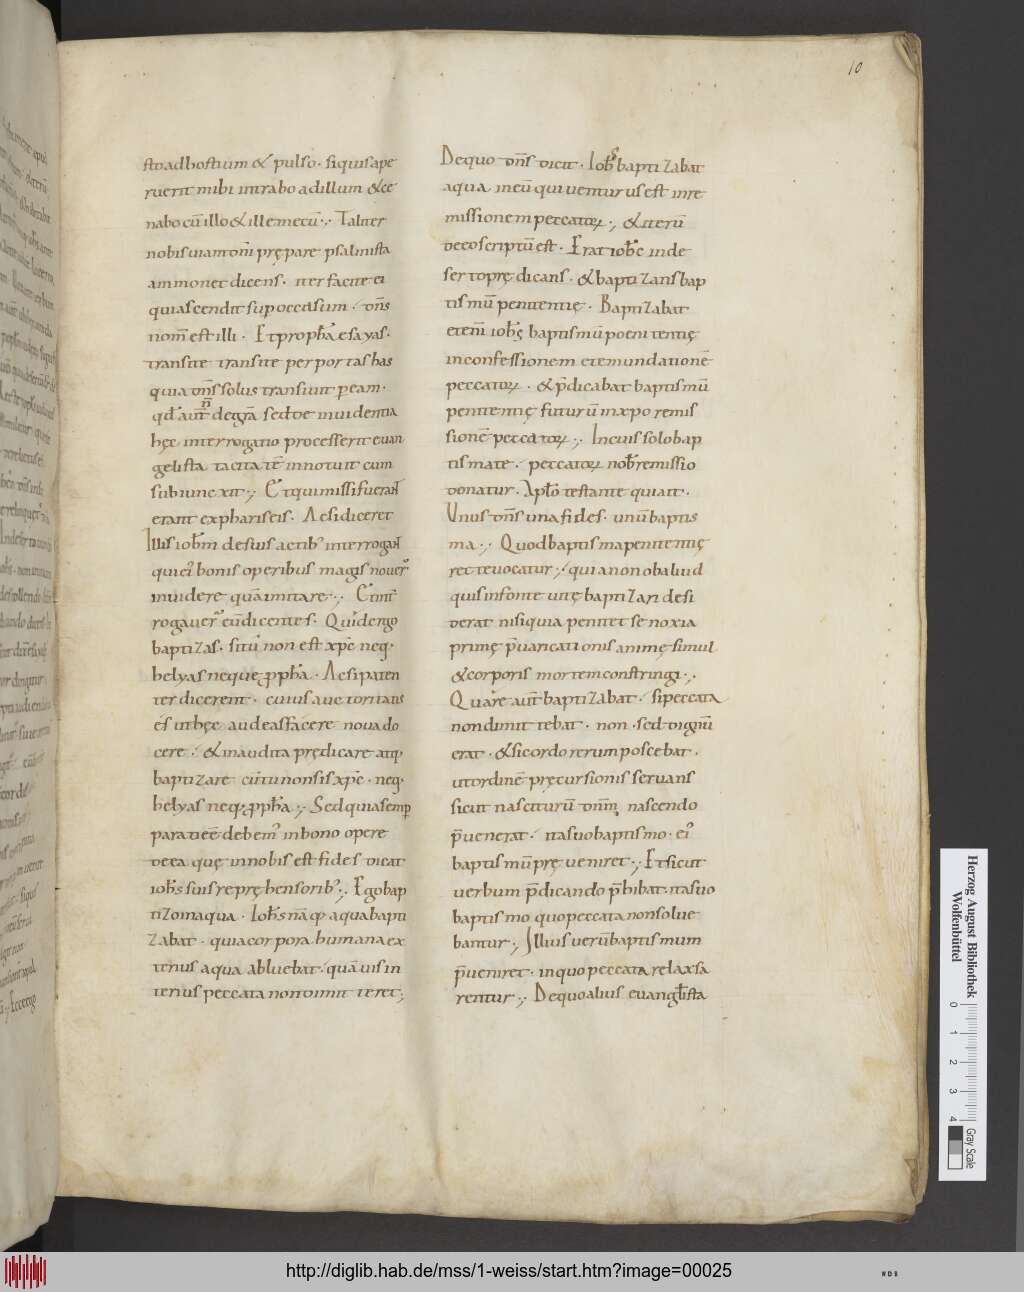 10
sto ad hostium & pulso · siquis ape
ruerit mihi intrabo ad illum & ce
nabo cū illo & ille mecū ·,· Taliter
nobis uiam dn̄i prępare psalmista
ammonet dicens · iter facite ei
qui ascendit sup occasum · dn̄s
nom̄ est illi · Et propha esayas ·
transite transite per portas has
quia dn̄s solus transiuit p eam ·
qd aut n̄ de gr̄a sed de inuidentia
hęc interrogatio processerit euan
gelista tacita tē innotuit cum
subiunexit ·,· Et qui missi fuerant
erant expharisęis · Ac si diceret
Illis ioh̄m de suis actib; interrogant
qui ei bonis operibus magis nouer̄
inuidere quā imitare ·,· Et int̄
rogauer̄ eū dicentes · Quid ergo
baptizas · si tu non est xp̄c neq·
helyas neque propha · Ac si paten
ter dicerent · cuius auctoritatis
és ut hęc audeas facere noua do
cere · & inaudita prędicare atq·
baptizare cū tu non sis xp̄c · neq·
helyas neq· propha ·,· Sed quia semp
parati eē debem; in bono opere
de ea quę in nobis est fides dicat
ioh̄s suis reprehensorib; ·,· Ego bap
tizo in aqua · Ioh̄s nā qp aqua bapti
zabat · quia corpora humana ex
terius aqua abluebat · quāuis in
terius peccata non dimitteret ·,·
De quo dn̄s dicit · Ioh̄s baptizabat
aqua in eū qui uenturus est in re
missionem peccator̄ ·,· & iterū
de eo scriptū est · Erat ioh̄s in de
serto prędicans · & baptizans bap
tismū penitentię · Baptizabat
etenī ioh̄s baptismū poenitentię
in confessionem et emundationē
peccator̄ · & p̄dicabat baptismū
penitentię futurū in xp̄o remis
sionē peccator̄ ·,· In cuius solo bap
tismate · peccator̄ nob̄ remissio
donatur · Apl̄o testante qui ait ·
Unus dn̄s una fides · unū baptis
ma ·,· Quod baptisma penitentię
rec te uocatur · quia non ob aliud
quis in fonte uitę baptizari desi
derat nisi quia penitet se noxia
primę p̄uaricationis animę simul
& corporis mortem constringi ·,·
Quare aut̄ baptizabat · si peccata
non dimittebat · non · sed dignū
erat · & sic ordo rerum poscebat ·
ut ordinē pręcursionis seruans
sicut nasciturū dn̄m nascendo
p̄uenerat · ita suo baptismo · ei;
baptismū pręueniret ·,· Et sicut
uerbum p̄dicando p̄hibat · ita suo
baptismo quo peccata non solue
bantur ·,· Illius uerū baptismum
p̄ueniret · in quo peccata relaxa
rentur ·,· De quo alius euanglista
Herzog August Bibliothek
Wolfenbüttel
0 1 2 3 4
Gray Scale
http://diglib.hab.de/mss/1-weiss/start.htm?image=00025